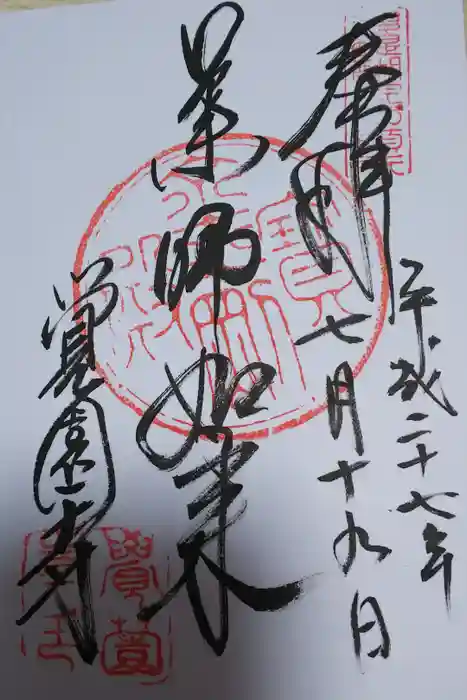 奉拝
平成二十七年
七月十九日
薬師如来
覚園寺